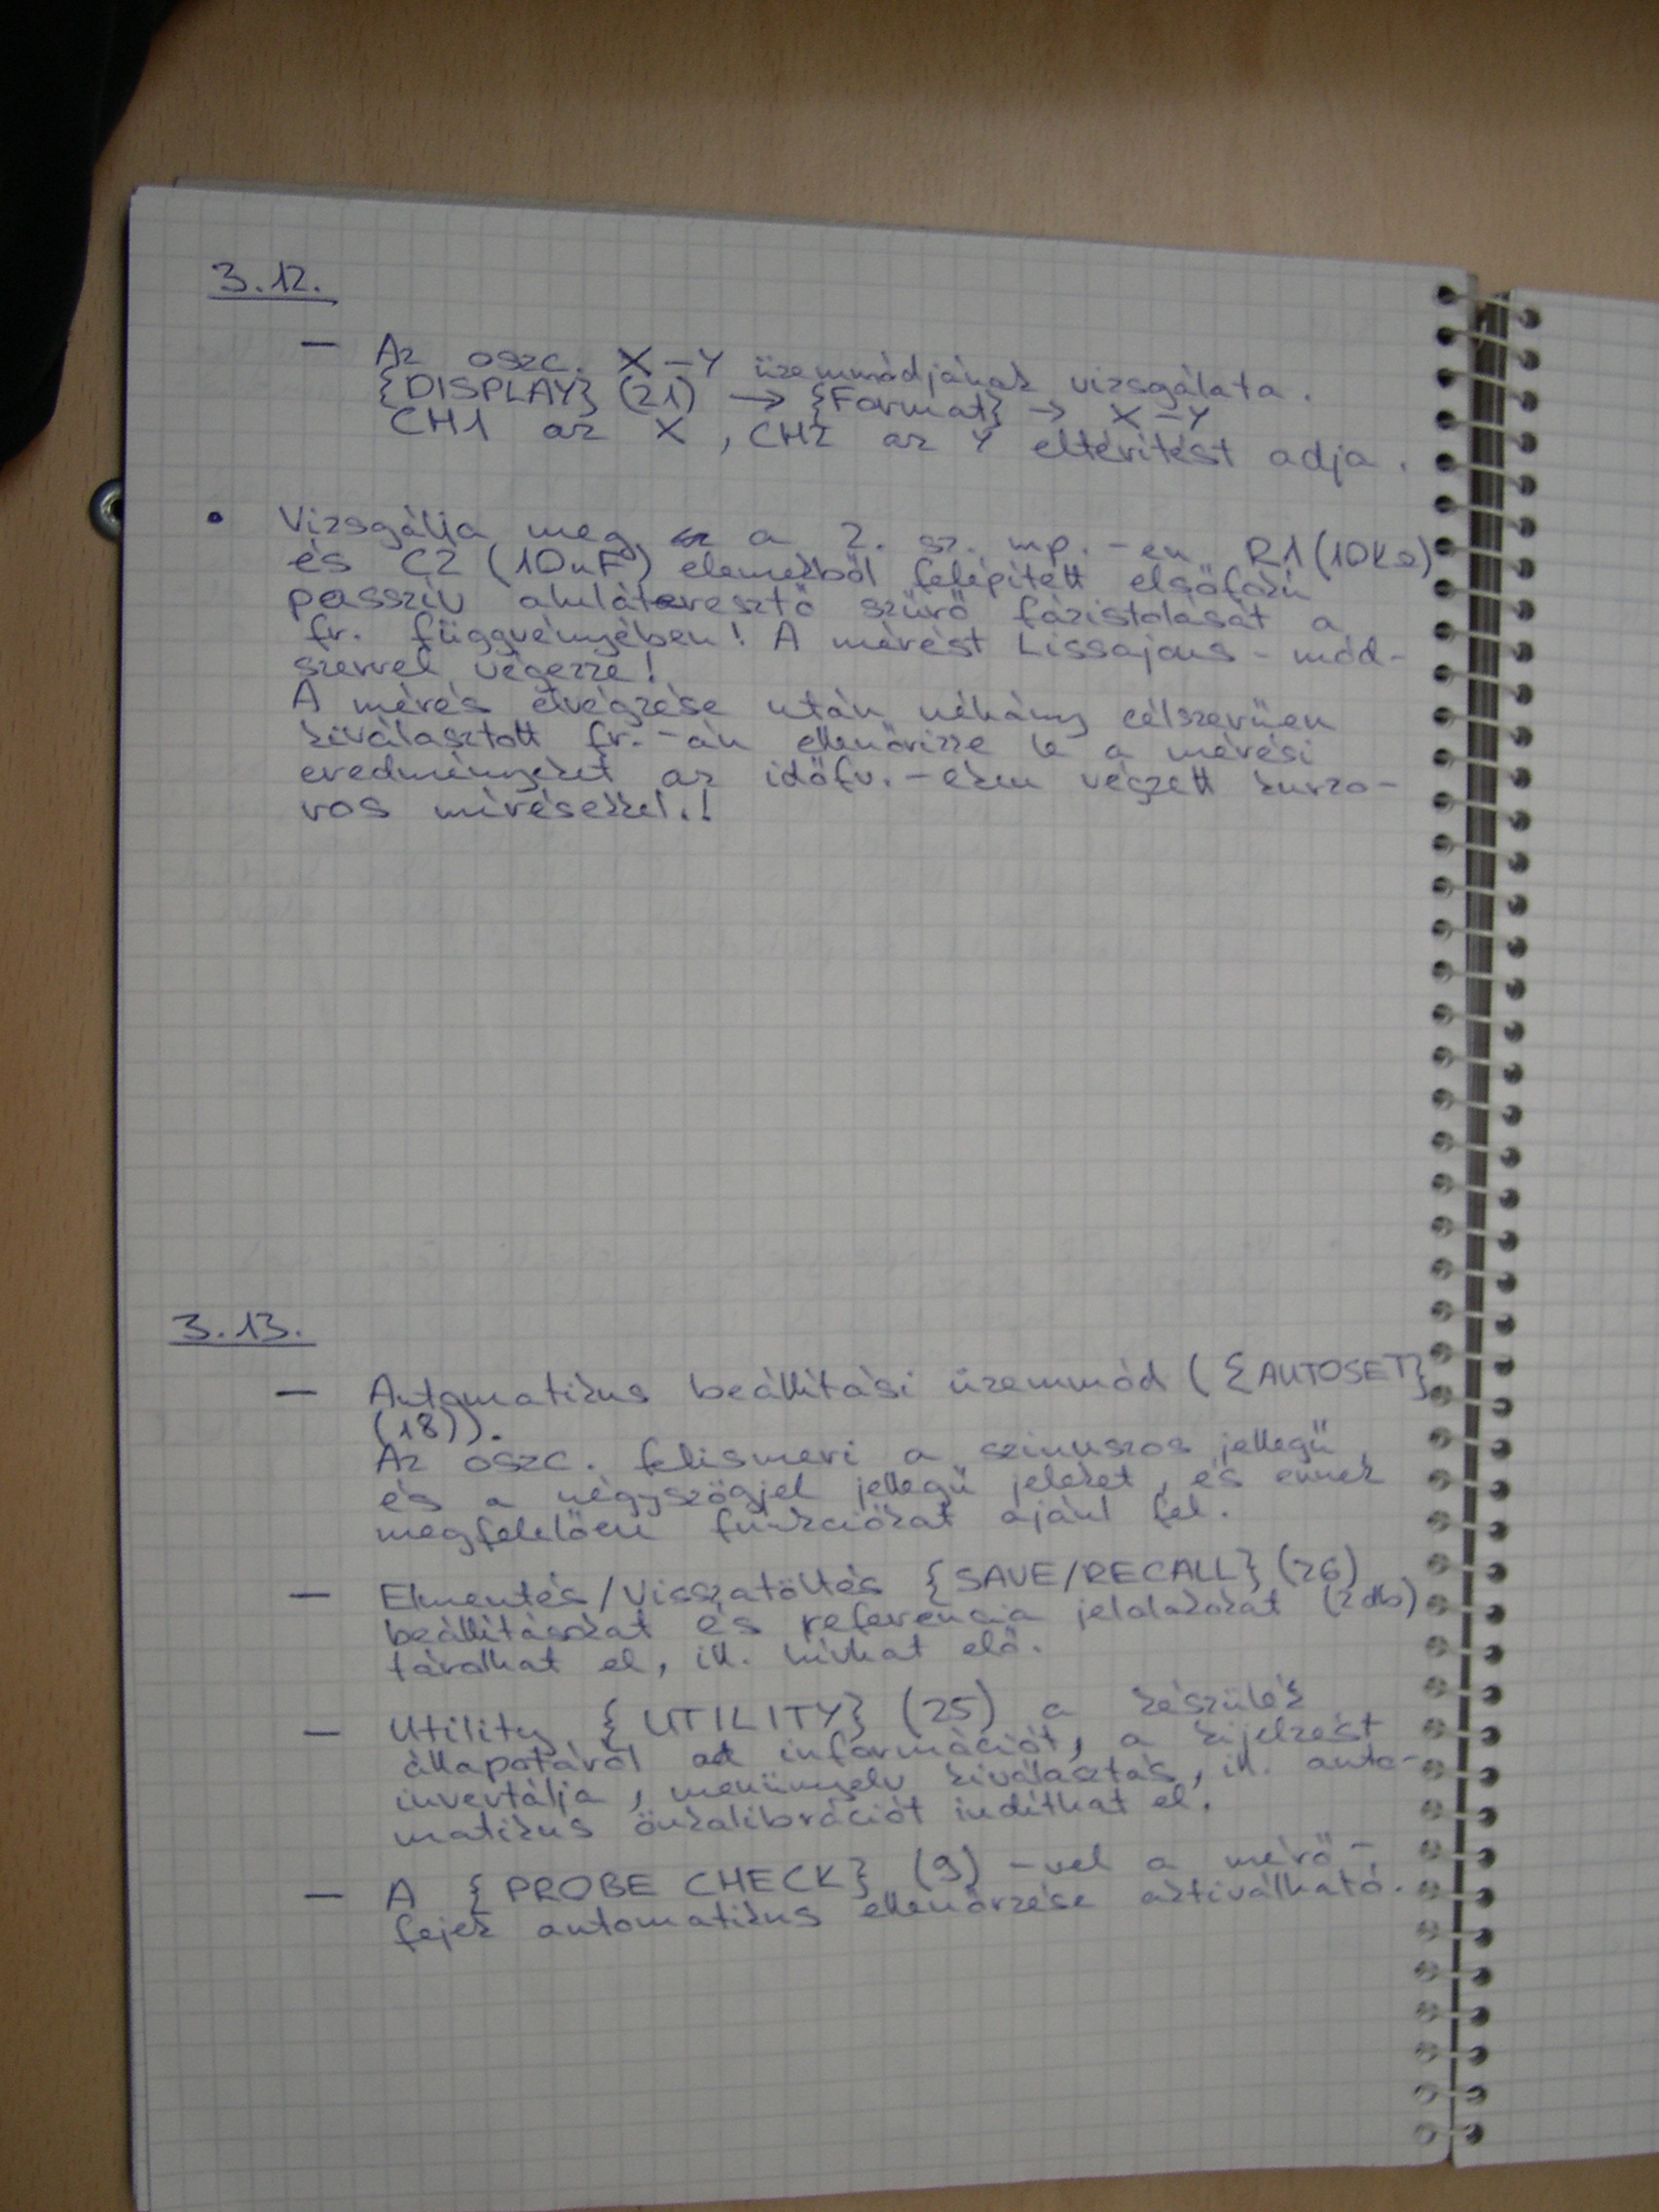 3.12.
— Az oszc. X-Y üzemmódjának vizsgálata.
{DISPLAY} (21) → {Format} → X-Y
CH1 az X, CH2 az Y eltérítést adja.
• Vizsgálja meg a 2. sz. mp.-en R1(10KΩ)
és C2 (10nF) elemekből felépített elsőfokú
passzív aluláteresztő szűrő fázistolását a
fr. függvényében! A mérést Lissajous-mód-
szerrel végezze!
A mérés elvégzése után néhány célszerűen
kiválasztott fr.-án ellenőrizze le a mérési
eredményeket az időfv.-eken végzett kurzo-
ros mérésekkel.!
3.13.
— Automatikus beállítási üzemmód ({AUTOSET}
(18)).
Az oszc. felismeri a szinuszos jellegű
és a négyszögjel jellegű jeleket, és ennek
megfelelően funkciókat ajánl fel.
— Elmentés/Visszatöltés {SAVE/RECALL} (26)
beállításokat és referencia jelalakokat (2db)
tárolhat el, ill. hívhat elő.
— Utility {UTILITY} (25) a készülék
állapotáról ad információt, a kijelzést
invertálja, menünyelv kiválasztás, ill. auto-
matikus önkalibrációt indíthat el.
— A {PROBE CHECK} (9) -vel a mérő-
fejek automatikus ellenőrzése aktiválható.